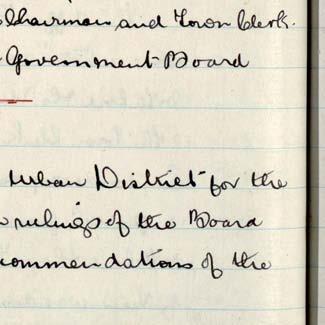 Chairman and Town Clerk.
Government Board
Urban District for the
rulings of the Board
commendations of the